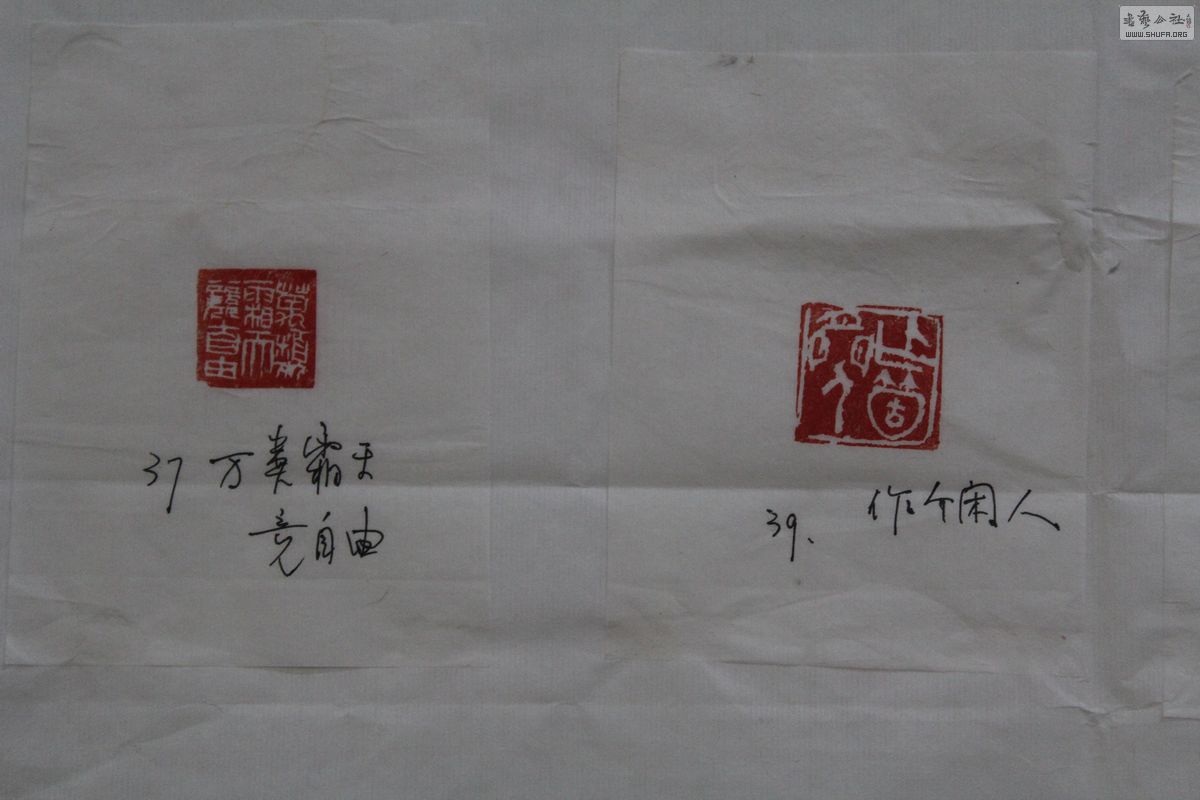 书艺公社
WWW.SHUFA.ORG
萬類
霜天
競自由
37 万类霜天
竞自由
作个
闲人
39、 作个闲人